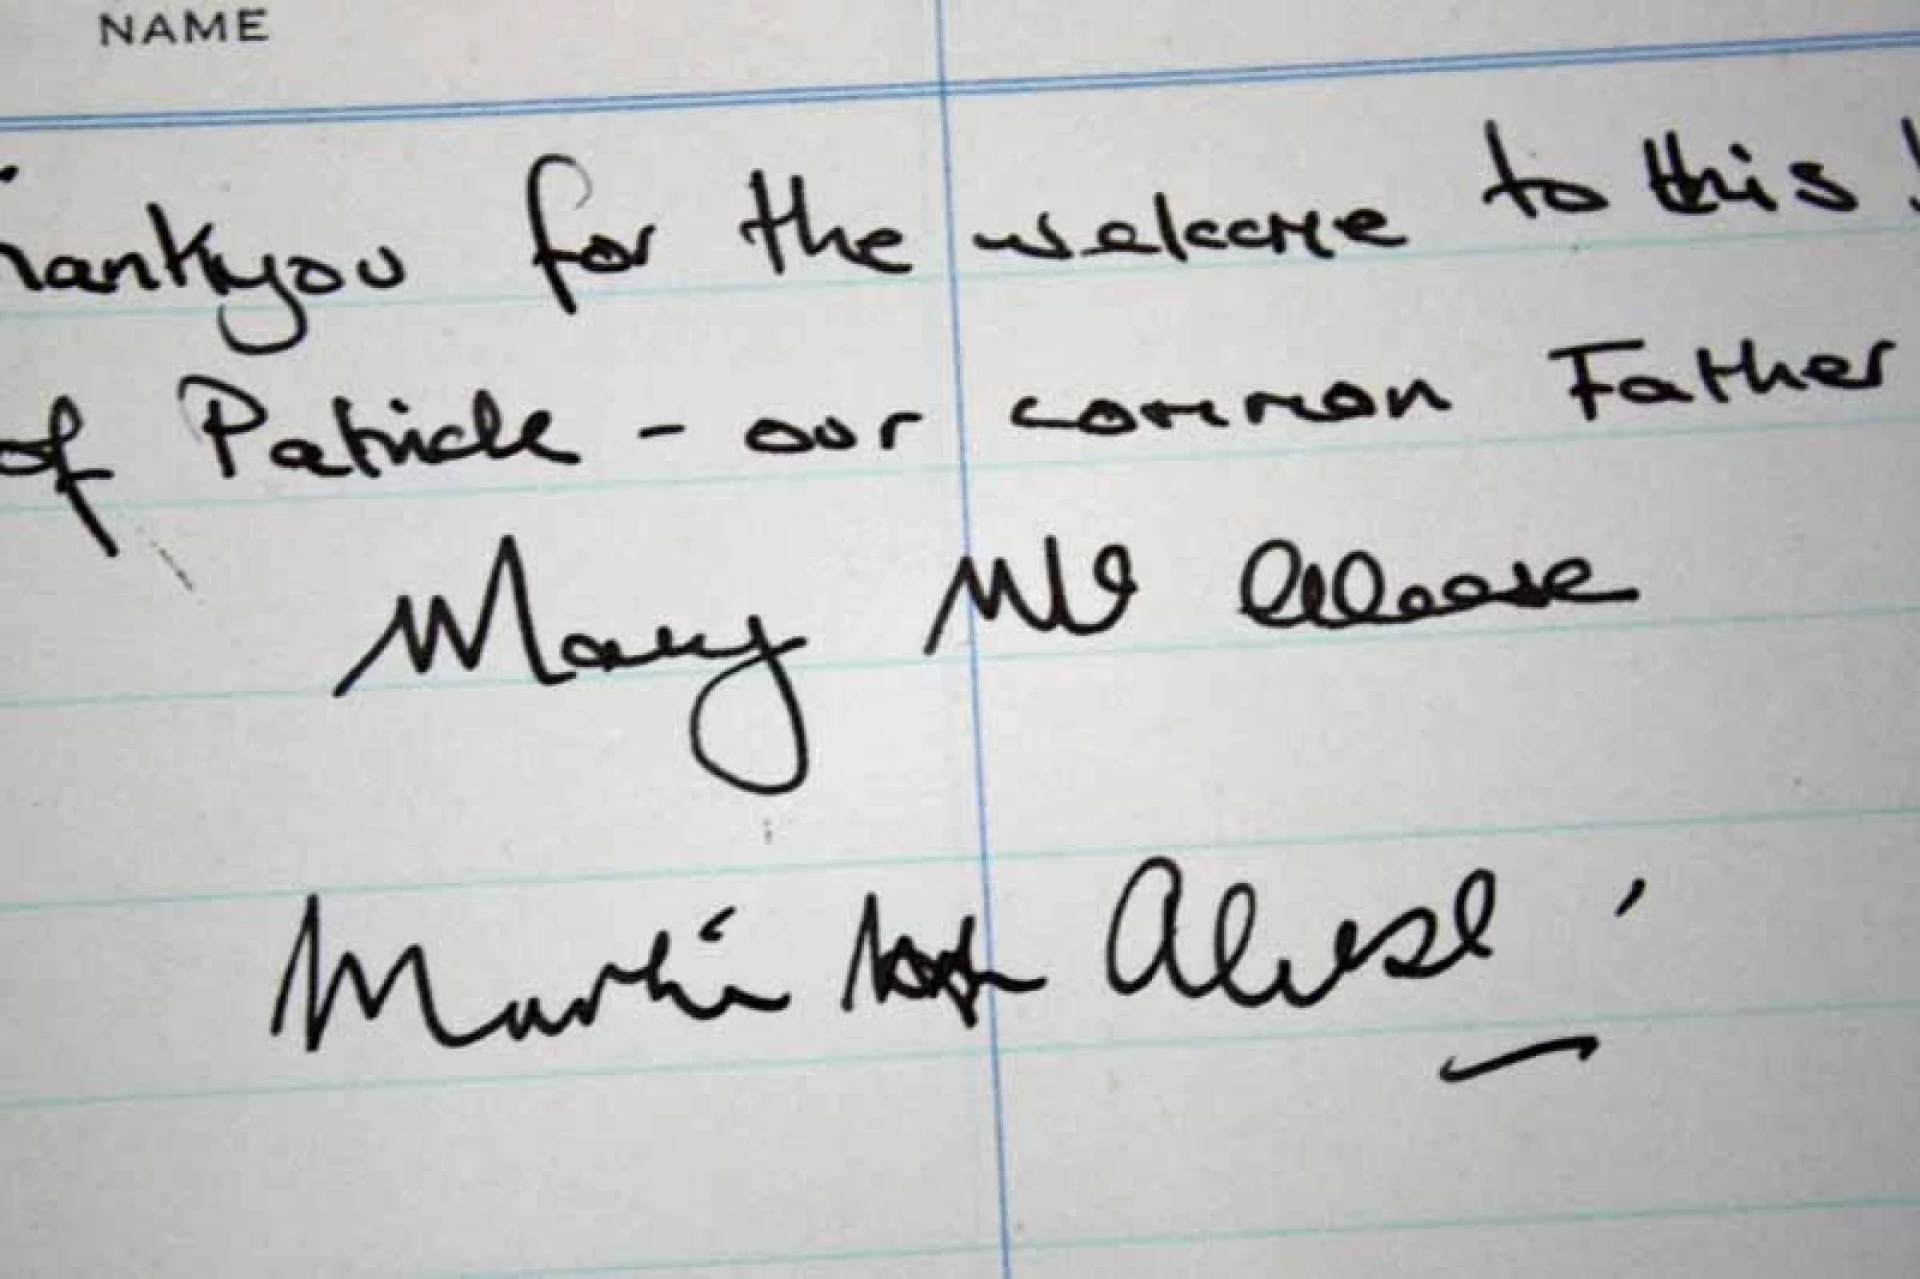 NAME
hankyou for the welcome to this
of Patrick - our common Father
Mary McAleese
Martin McAleese